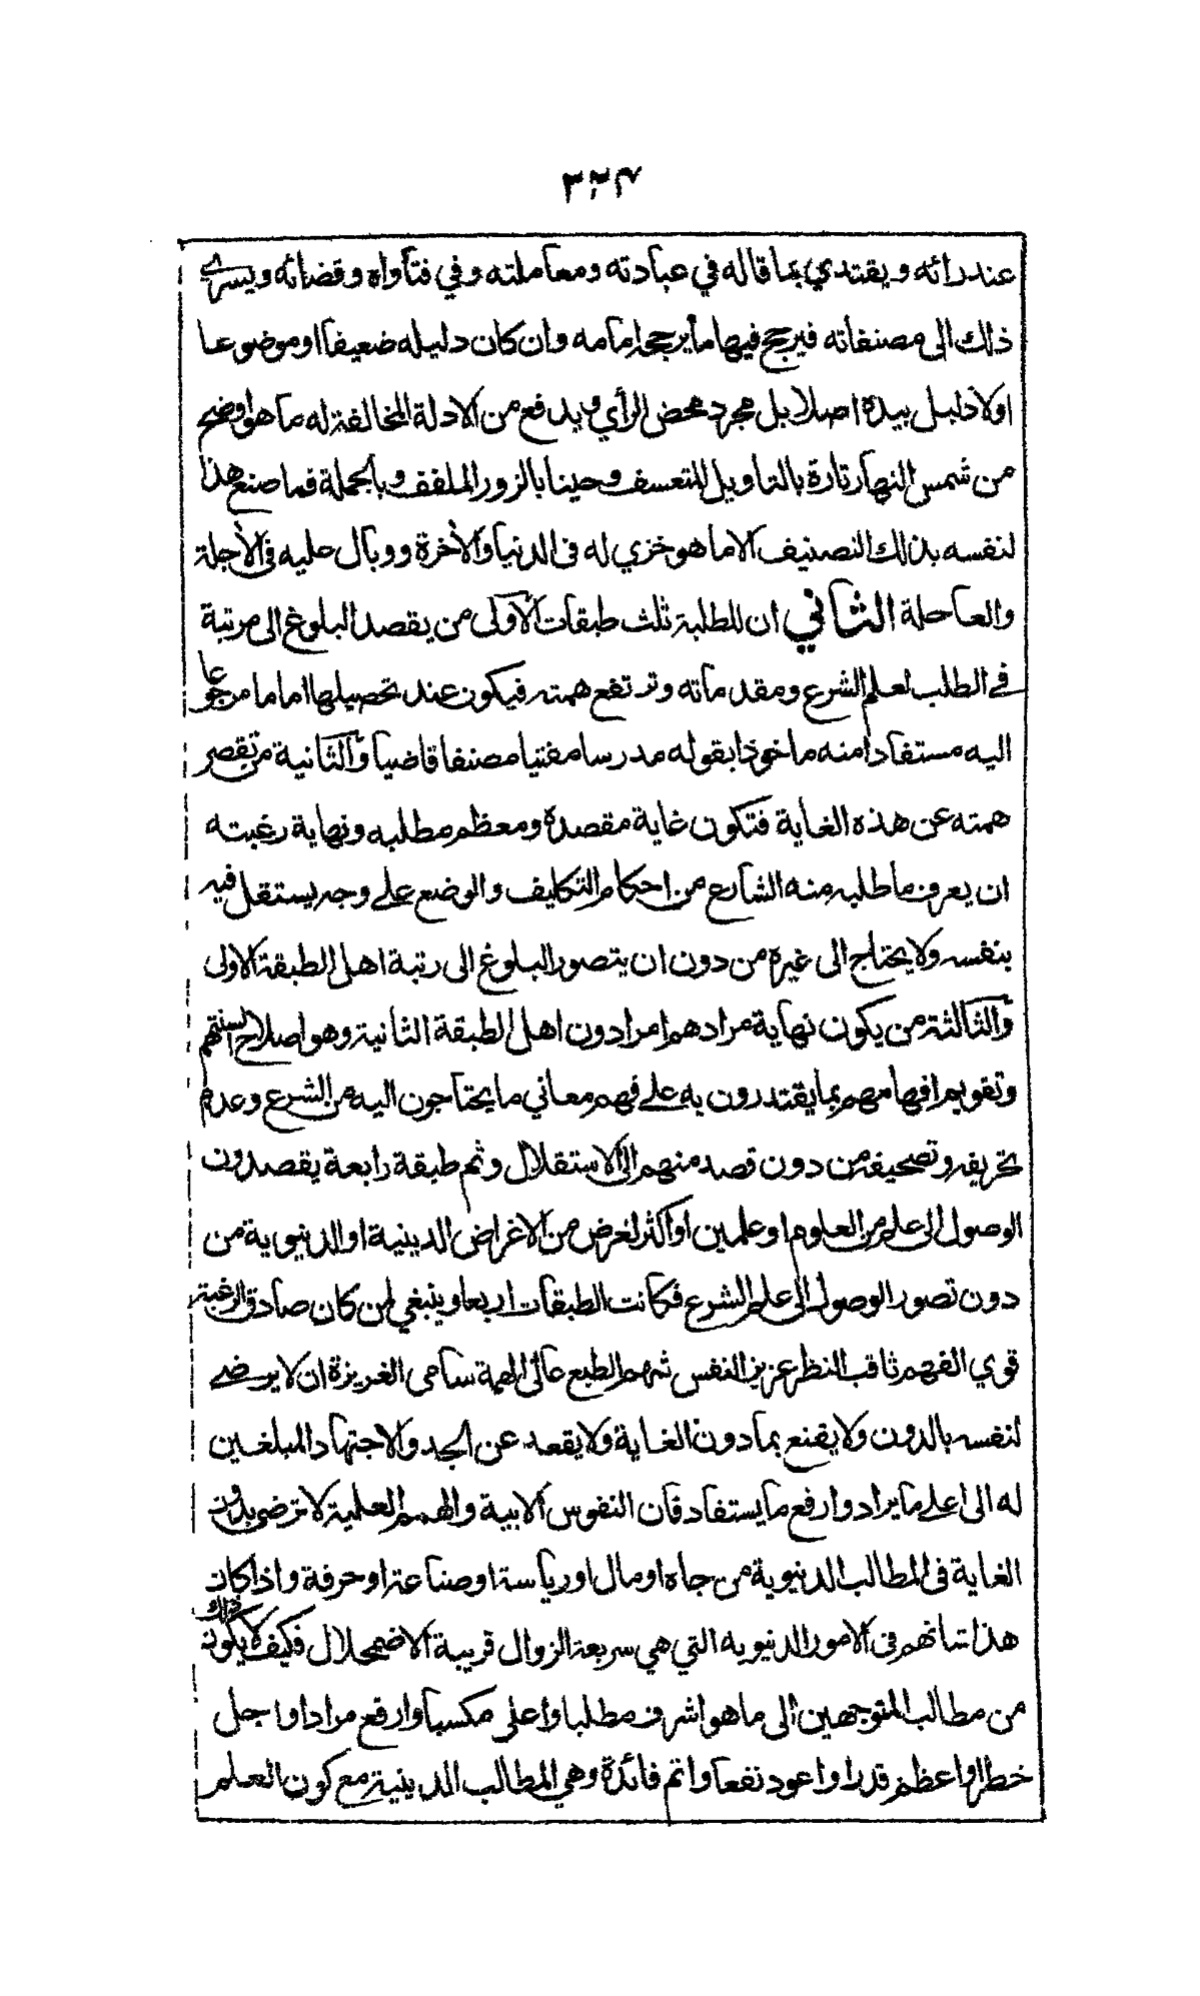 ٣٢٤
عند رائه ويقتدي بما قاله في عبادته ومعاملته وفي فتاواه وقضائه ويسري
ذلك الى مصنفاته فيرجح فيها ما يرجحه امامه وان كان دليله ضعيفا او موضوعا
او لا دليل بيده اصلا بل مجرد محض الرأي ويدفع من الادلة المخالفة له ما هو اوضح
من شمس النهار تارة بالتاويل المتعسف وحينا بالزور الملفف وبالجملة فما صنع هذا
لنفسه بذلك التصنيف الا ما هو خزي له في الدنيا والأخرة ووبال عليه في الأجلة
والعاجلة الثاني ان للطلبة ثلث طبقات الأولى من يقصد البلوغ الى مرتبة
في الطلب لعلم الشرع ومقدماته وترتفع همته فيكون عند تحصيلها اماما مرجوعا
اليه مستفادا منه ماخوذا بقوله مدرسا مفتيا مصنفا قاضيا والثانية من تقصر
همته عن هذه الغاية فتكون غاية مقصده ومعظم مطلبه ونهاية رغبته
ان يعرف ما طلبه منه الشارع من احكام التكليف والوضع على وجه يستقل فيه
بنفسه ولا يحتاج الى غيره من دون ان يتصور البلوغ الى رتبة اهل الطبقة الاولى
والثالثة من يكون نهاية مرادهم امرا دون اهل الطبقة الثانية وهو اصلاح السنتهم
وتقويم افهامهم بما يقتدرون به على فهم معاني ما يحتاجون اليه من الشرع وعدم
تحريفه وتصحيفه من دون قصد منهم الى الاستقلال وثم طبقة رابعة يقصدون
الوصول الى علم من العلوم او علمين او اكثر لغرض من الاغراض الدينية او الدنيوية من
دون تصور الوصول الى علم الشرع فكانت الطبقات اربعا وينبغي لمن كان صادق الرغبة
قوي الفهم ثاقب النظر عزيز النفس شهم الطبع عالي الهمة سامي الغريزة ان لا يرضى
لنفسه بالدون ولا يقنع بما دون الغاية ولا يقعد عن الجد والاجتهاد المبلغين
له الى اعلى ما يراد وارفع ما يستفاد فان النفوس الابية والهمم العلمية لا ترضى بدون
الغاية في المطالب الدنيوية من جاه او مال او رياسة او صناعة او حرفة واذا كان
هذا شانهم في الامور الدنيويه التي هي سريعة الزوال قريبة الاضمحلال فكيف لا يكون ذلك
من مطالب المتوجهين الى ما هو اشرف مطلبا واعلى مكسبا وارفع مرادا واجل
خطرا واعظم قدرا واعود نفعا واتم فائدة وهي المطالب الدينية مع كون العلم